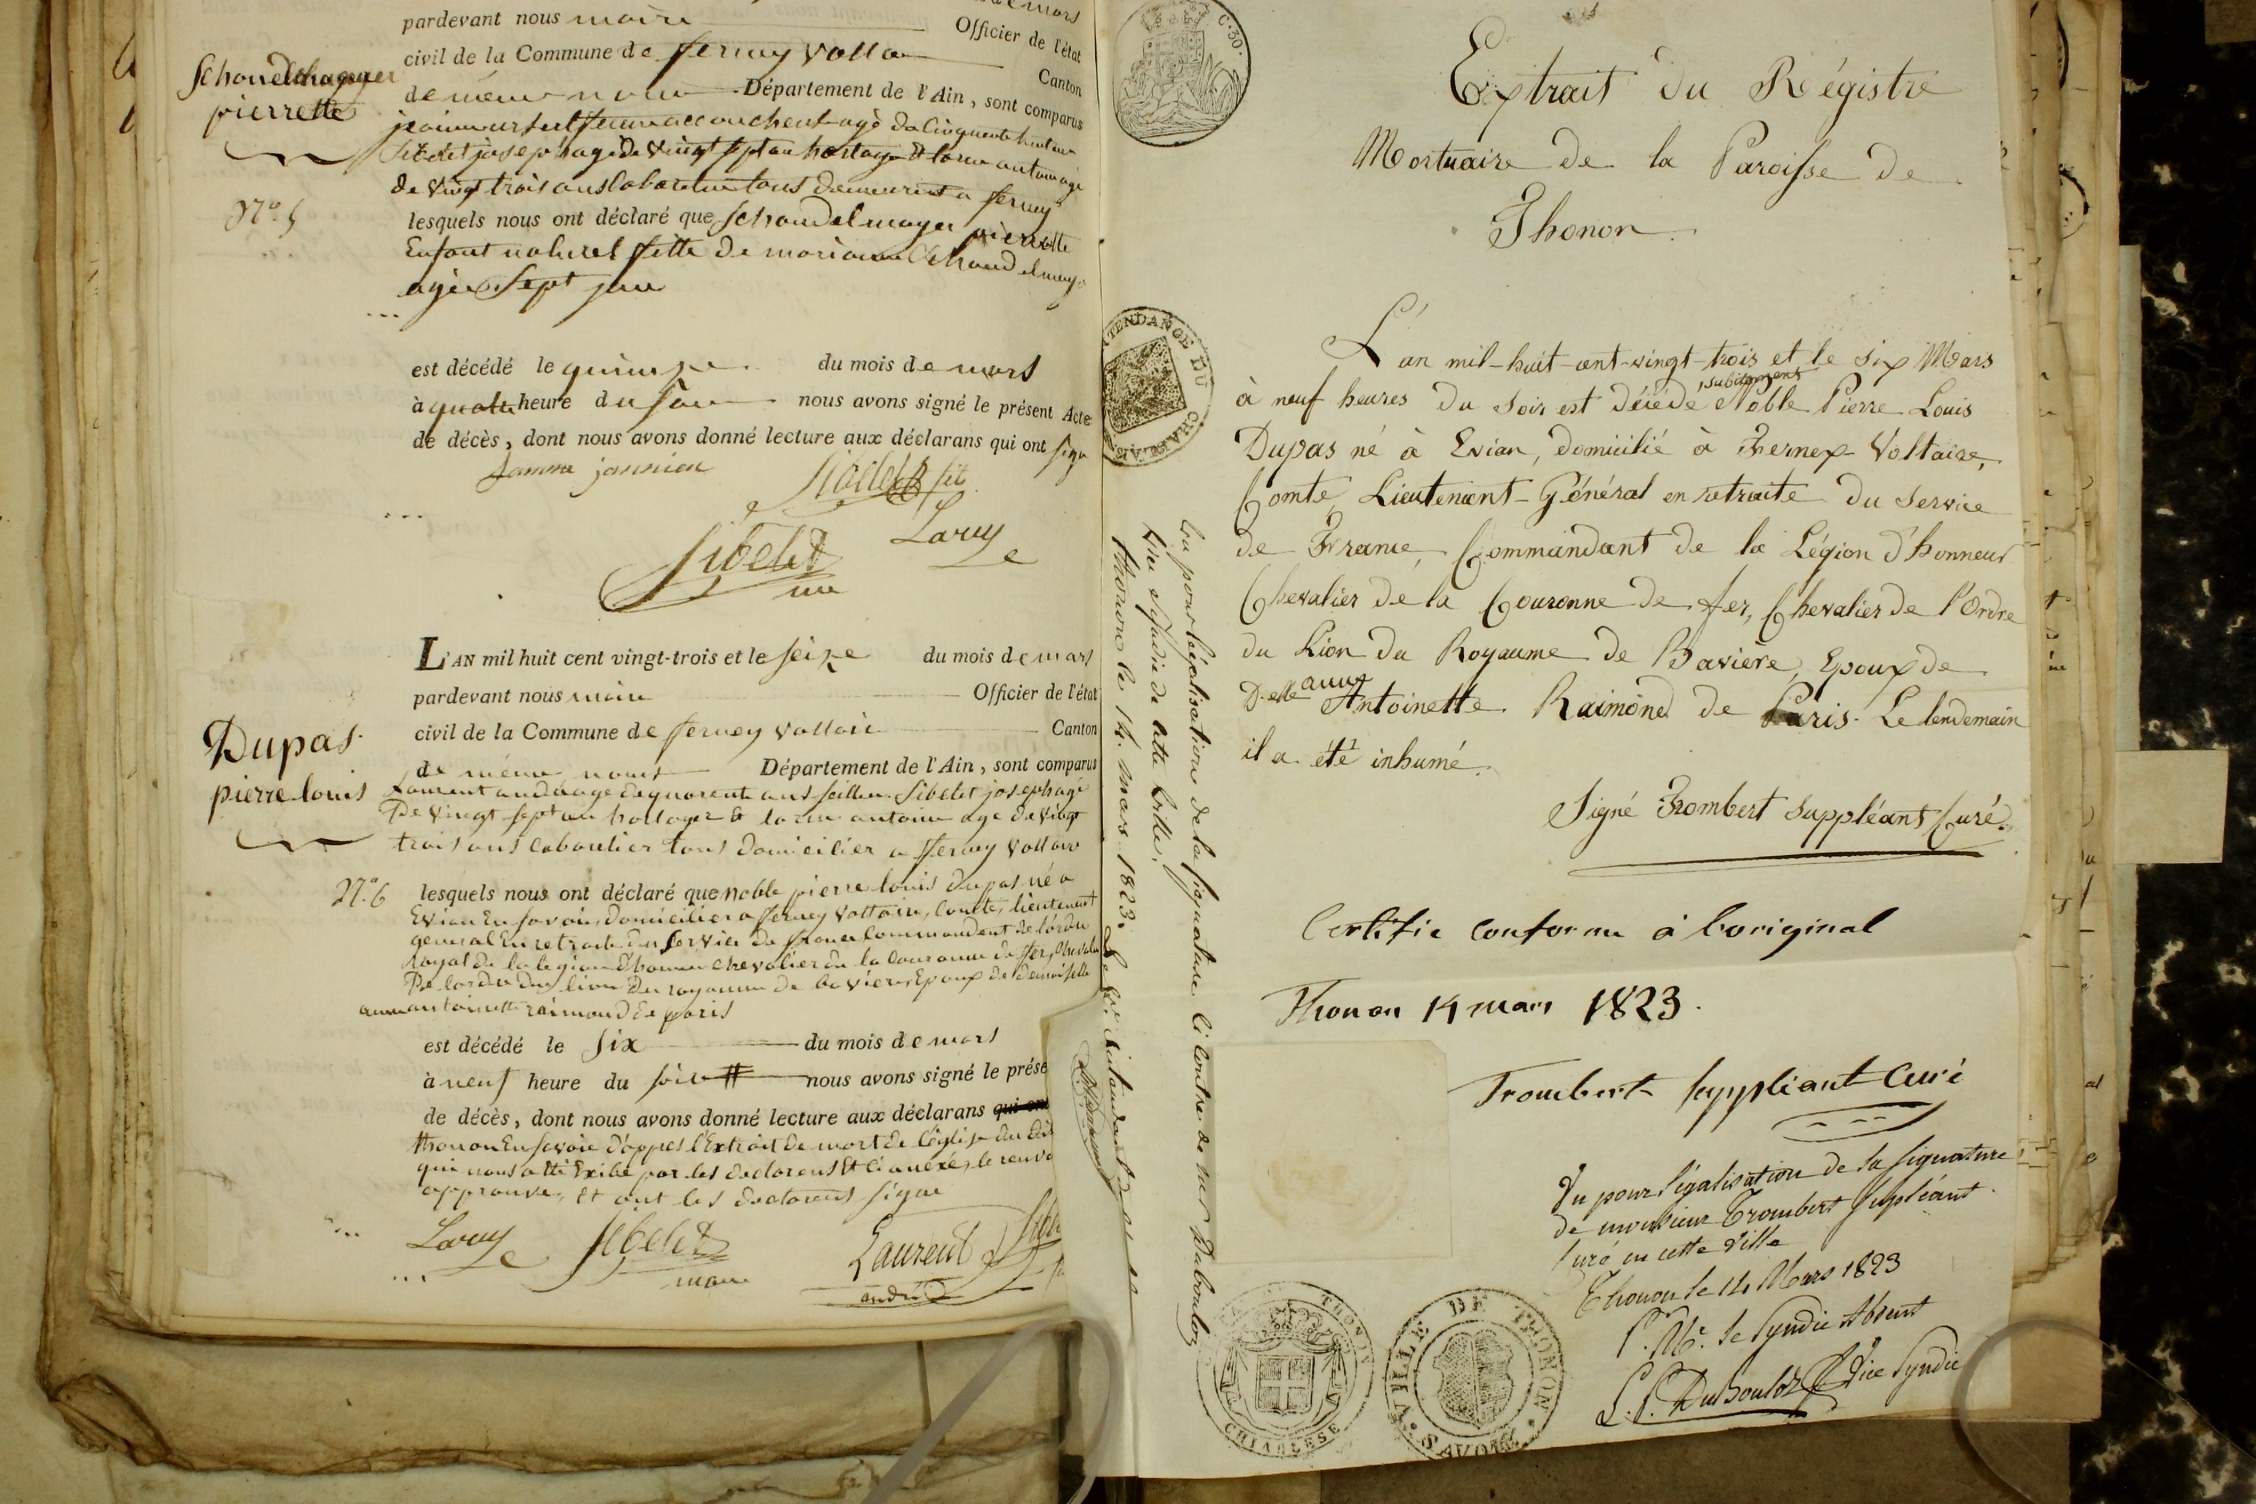 de mars
pardevant nous maire Officier de l'état
civil de la Commune de ferney Voltaire Canton
de même nom Département de l'Ain, sont comparus
Schoudelmayer
pierrette
agé de Cinquante huit ans
Sibelet joseph agé de vingt sept an horloger & larue antoine agé
de vingt trois ans laboureur tous demeurent a ferney
N.° 5
lesquels nous ont déclaré que Schoudelmayer pierrette
Enfant naturel fille de marianne Schoudelmayer
agée Sept jour
est décédé le quinze du mois de mars
à quatre heure du soir nous avons signé le présent Acte
de décès, dont nous avons donné lecture aux déclarans qui ont signé
Sibelet fils
Laruë
Sibelet
maire
L'AN mil huit cent vingt-trois et le seize du mois de mars
pardevant nous maire Officier de l'état
civil de la Commune de ferney Voltaire Canton
de même nom Département de l'Ain, sont comparus
Dupas
pierre louis
Laurent andré agé de quarente ans sellier Sibelet joseph agé
De vingt sept an horloger & larue antoine age de vingt
trois ans laboureur tous domicilier a fferney Voltaire
N.° 6
lesquels nous ont déclaré que noble pierre louis dupas né a
Evian En Savoie, domicilier a ferney Voltaire, Comte, lieutenant
general En retraite du service de france Commandent de l'ordre
Royal de la legion d'honneur chevalier de la Couronne de ffer, Chevalier
De lordre du lion du royaume de baviere, Epoux de demoiselle
anne antoinette raimond de paris
est décédé le six du mois de mars
à neuf heure du soir nous avons signé le prése
de décès, dont nous avons donné lecture aux déclarans qui ont
thonon En Savoie d'appres l'Extrait de mort de l'église du dit
qui nous a été Exibé par les declarens Et ci anexé, le renvoi
approuvé, Et ont les declarens signé
Laruë Sibelet Laurent
maire andré
Extrait du Régistre
Mortuaire de la Paroisse de
Thonon.
L'an mil-huit-cent-vingt-trois et le six Mars
à neuf heures du soir est décédé subitement Noble Pierre Louis
Dupas né à Evian, domicilié à Fernex-Voltaire,
Comte, Lieutenant-Général en retraite du service
de France, Commandant de la Légion d'honneur
Chevalier de la Couronne de fer, Chevalier de l'Ordre
du Lion du Royaume de Bavière, Epoux de
D.elle anne Antoinette Raimond de Paris. Le lendemain
il a été inhumé.
Signé Trombert suppléant Curé.
Certifié conforme à l'original
Thonon 14 mars 1823.
Trombert suppléant Curé
Vu pour légalisation de la signature
de monsieur Trombert supléant
Curé en cette Ville
Thonon le 14 Mars 1823
P. Mr. le Syndic Absent
L. P. Dubouloz Vice Syndic
Vu pour légalisation de la signature ci contre de Mr Dubouloz
Vice Syndic de cette ville,
thonon le 14. mars 1823.
C. 30.
INTENDANCE DU CHABLAIS
THONON
CHIABLESE
VILLE DE THONON
SAVOIE